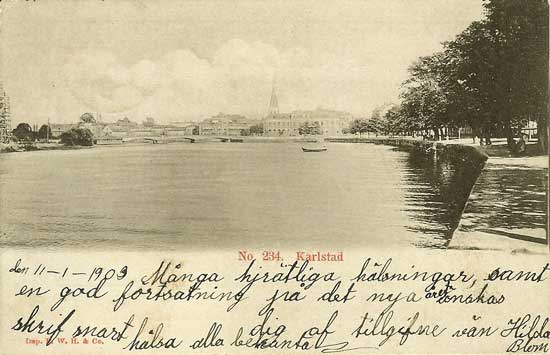 No. 234. Karlstad
den 11-1-1903 Många hjrätliga hälsningar, samt
en god fortsatning på det nya året önskas
dig af tillgifne vän Hilda Blom
skrif snart hälsa alla bekanta
Imp. E. W. H. & Co.